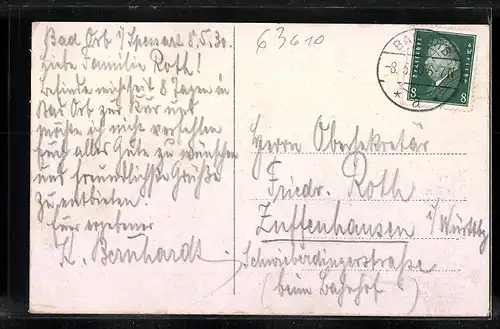 Bad Orb i/Spessart 8.5.30.
Liebe Familie Roth!
Befinde mich seit 8 Tagen in
Bad Orb zur Kur und
möchte ich nicht verfehlen
Euch alles Gute zu wünschen
und freundlichste Grüße
zu entbieten.
Euer ergebener
K. Bernhardt.
63610
BAD
8
8
a
Herrn Obersekretär
Friedr. Roth
Zuffenhausen i/Württbg
Schwieberdingerstraße
(beim Bahnhof)